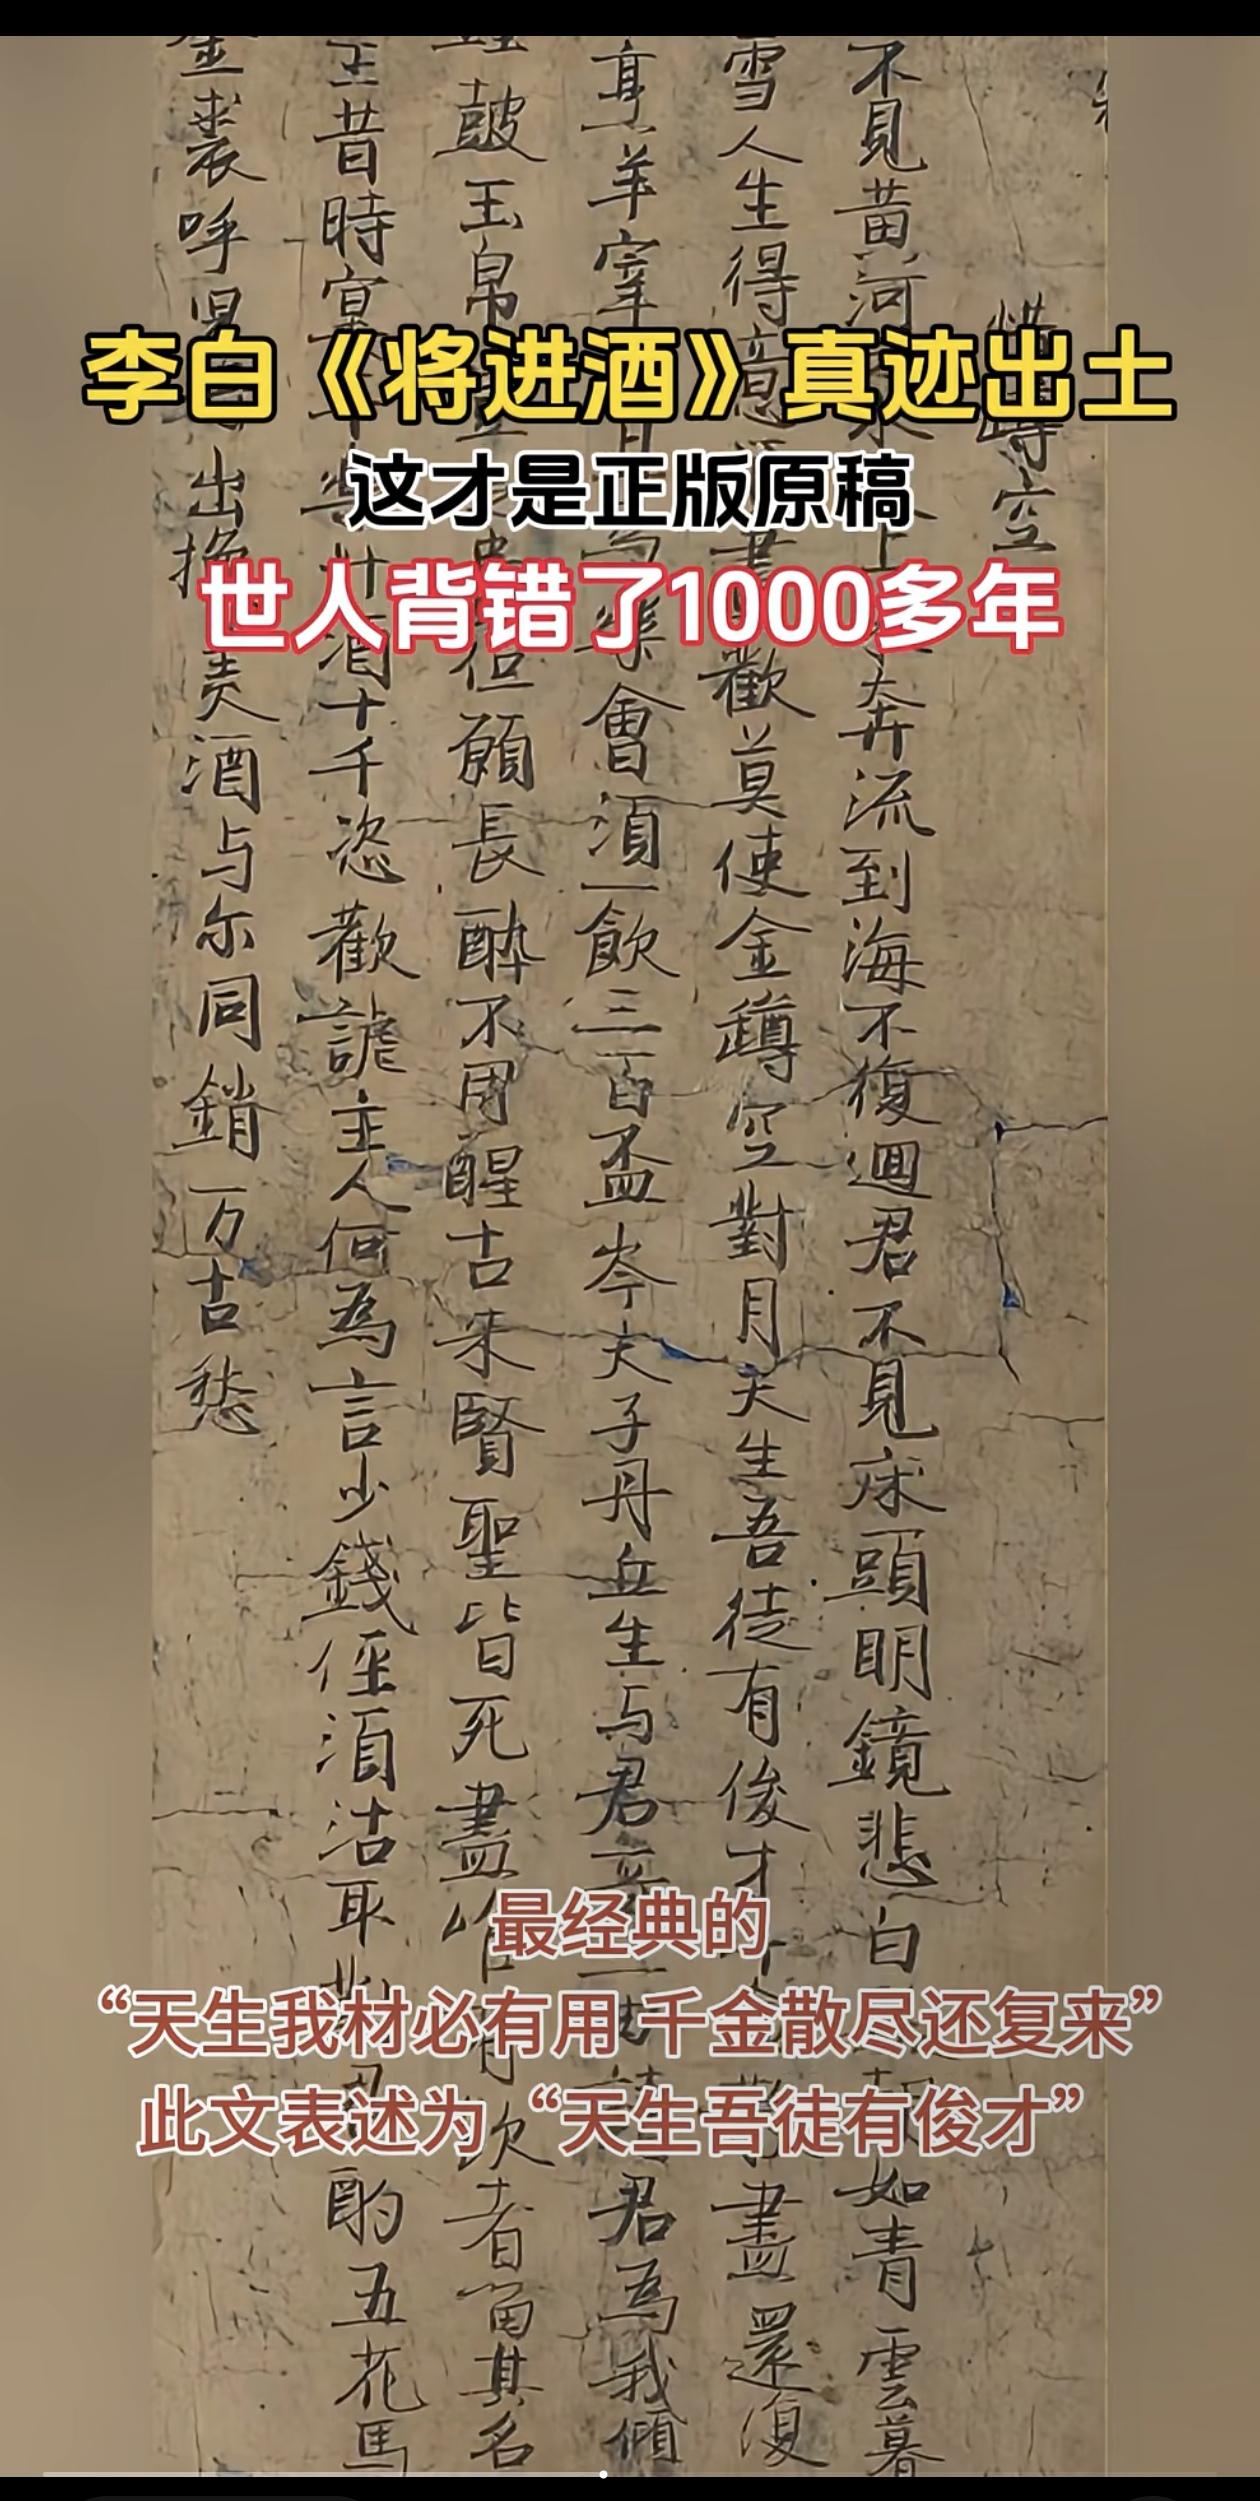 李白《将进酒》真迹出土
这才是正版原稿
世人背错了1000多年
惜罇空
不見黄河奔流到海不復迴君不見床頭明鏡悲白如青雲暮
雪人生得意歡莫使金罇空對月天生吾徒有俊才盡還復
亨羊宰樂會須一飲三百盃岑夫子丹丘生与君一君為我傾
皷玉帛但願長醉不用醒古来賢聖皆死盡者留其名
王昔時宴酒十千恣歡謔主人何為言少錢俓須沽取酌五花馬
金裘呼出换美酒与尔同銷万古愁
最经典的
“天生我材必有用 千金散尽还复来”
此文表述为“天生吾徒有俊才”